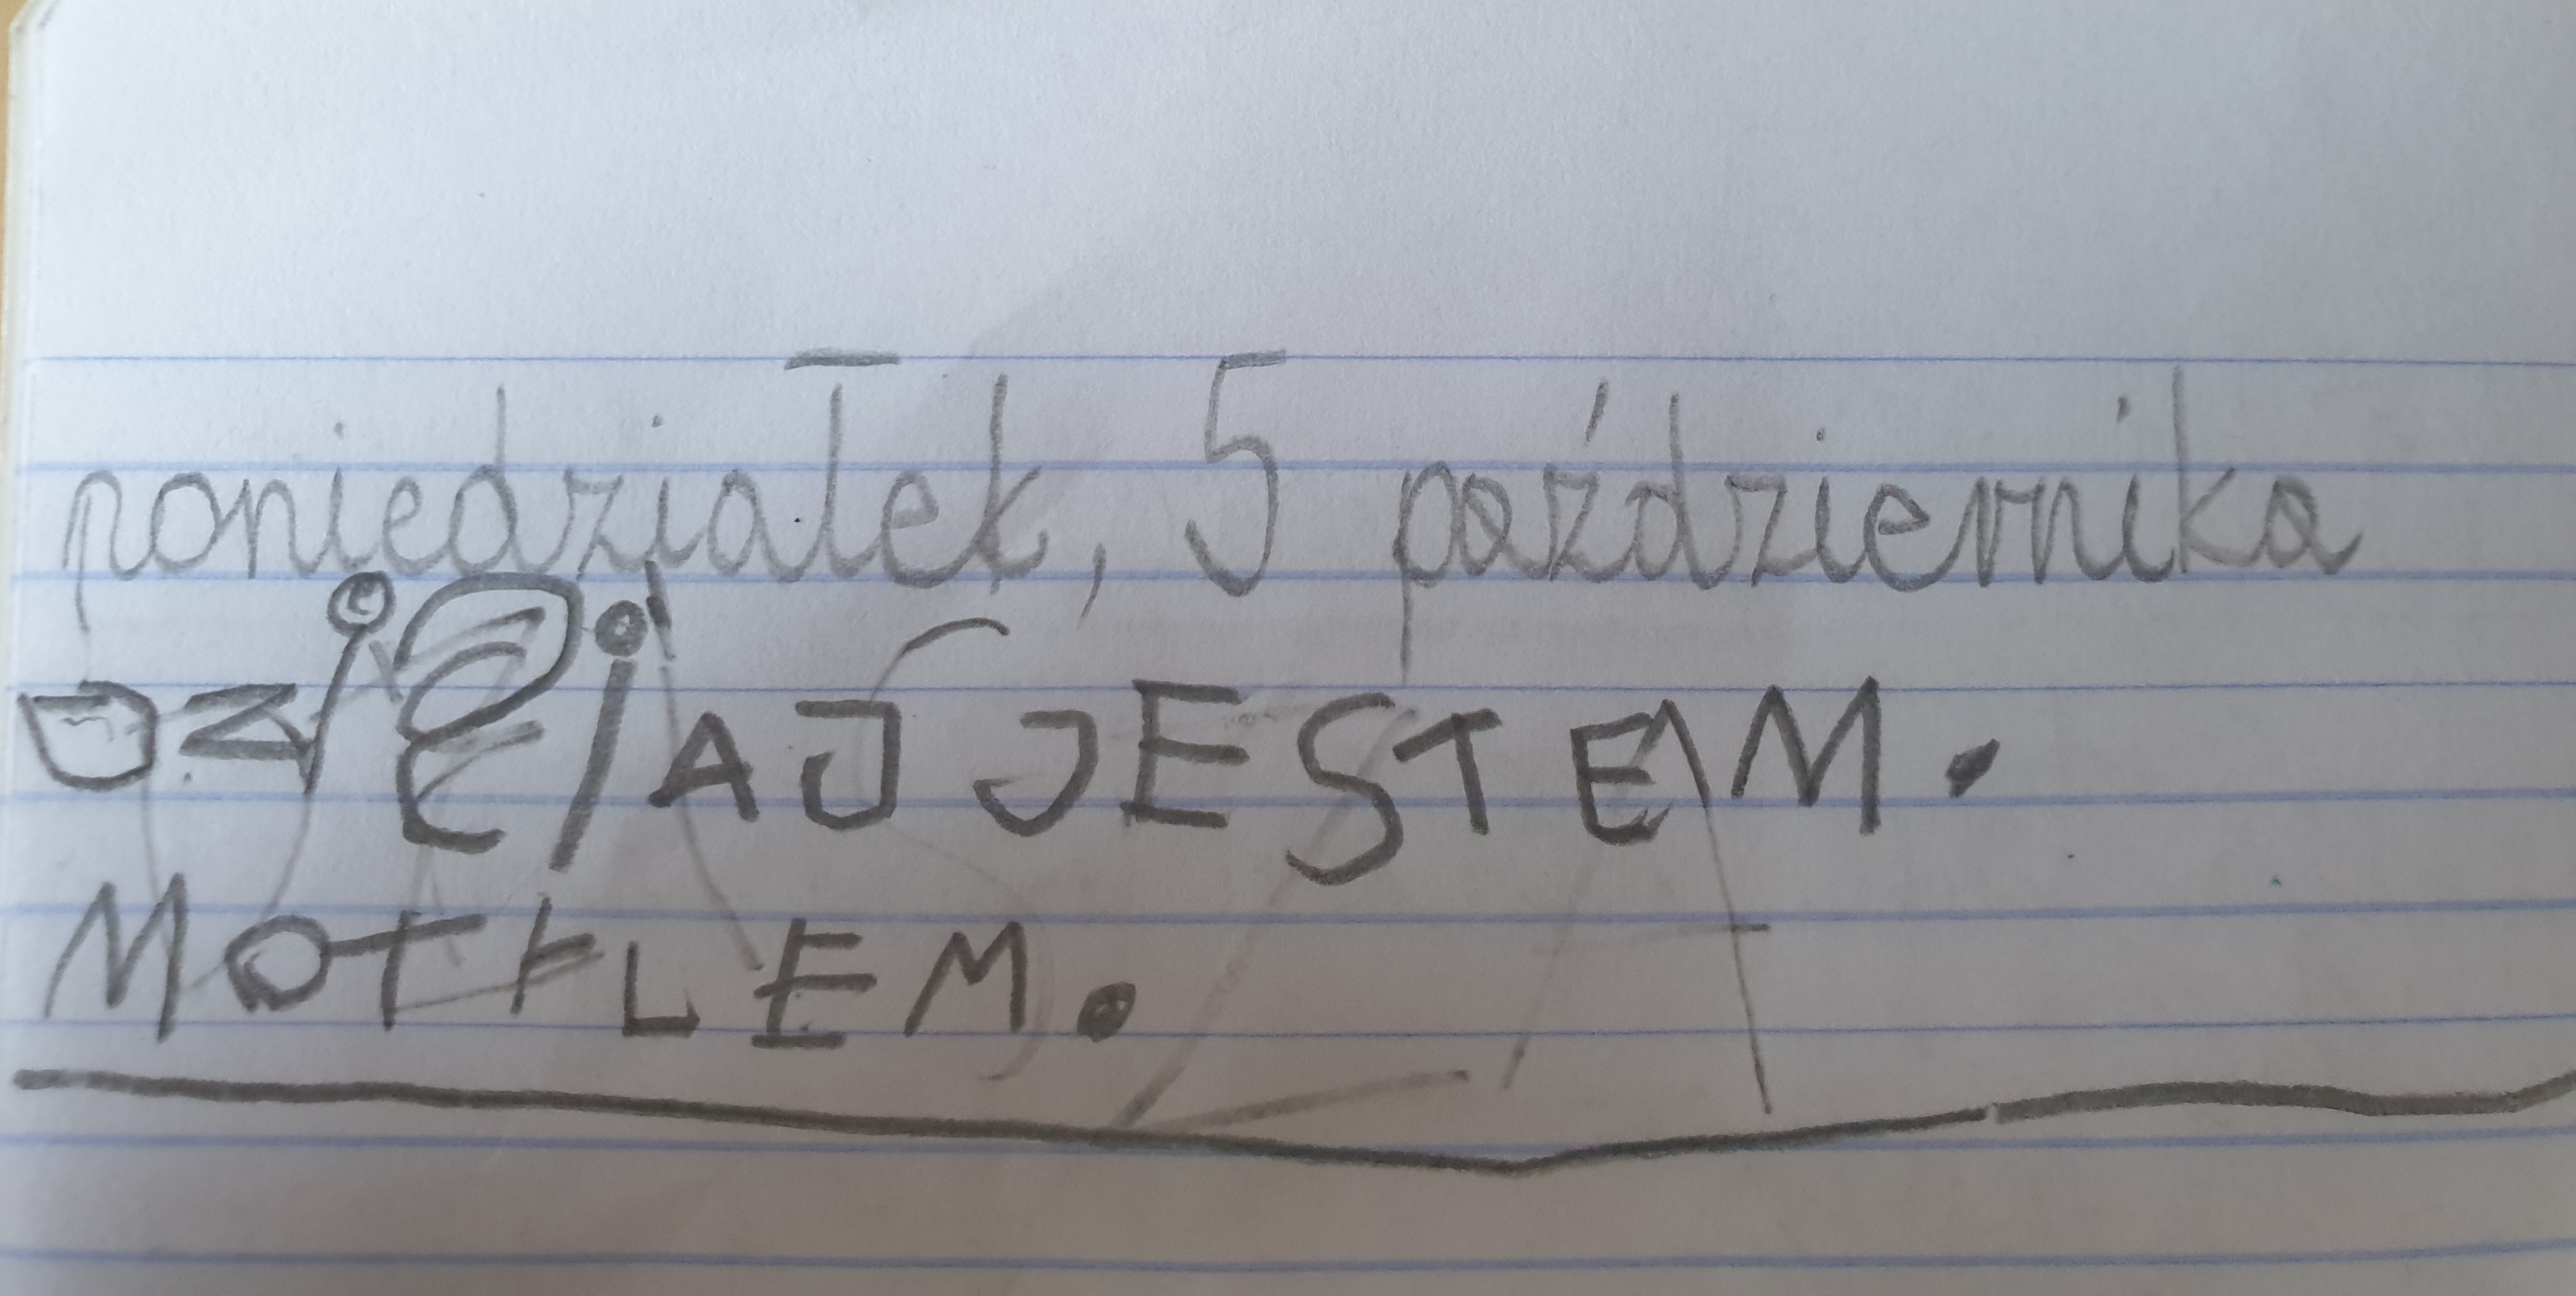 poniedziałek, 5 października
DZiSiAJ JESTEM.
MOTYLEM.